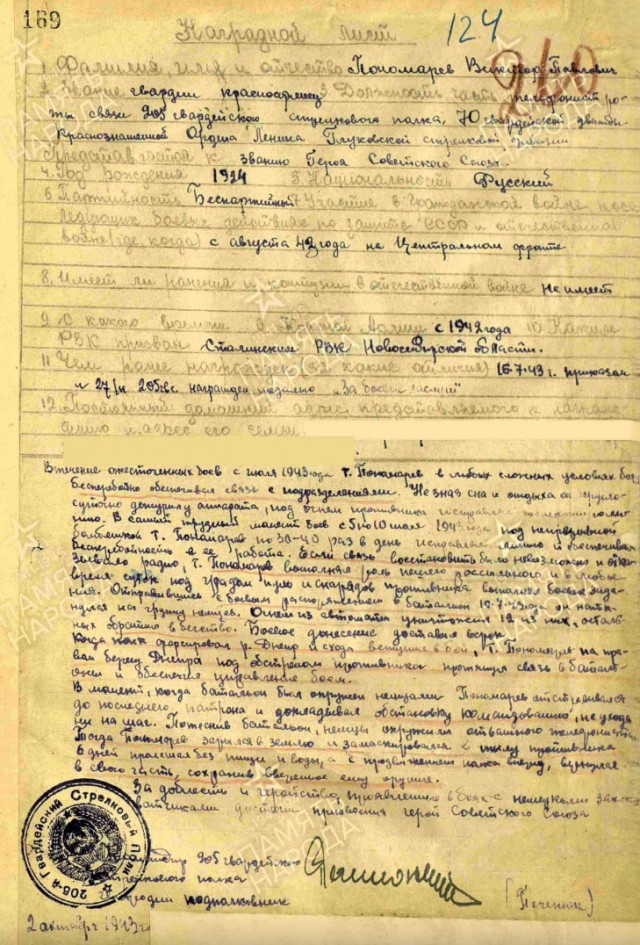 169
124
240
Наградной лист
1. Фамилия, имя и отчество Пономарев Виктор Павлович
2. Звание гвардии красноармеец 3. Должность, часть телефонист ро-
ты связи 205 гвардейского стрелкового полка, 70 гвардейской дважды
Краснознаменной Ордена Ленина Глуховской стрелковой дивизии
Представляется к званию Героя Советского Союза.
4. Год рождения 1924 5. Национальность Русский
6. Партийность Беспартийный 7. Участие в гражданской войне, после-
дующих боевых действиях по защите СССР и отечественной
войне (где, когда) с августа 42 года на Центральном фронте
8. Имеет ли ранения и контузии в отечественной войне не имеет
9. С какого времени в Красной Армии с 1942 года 10. Каким
РВК призван Сталинским РВК Новосибирской области.
11. Чем ранее награжден (за какие отличия) 16.7.43 г. приказом
27/н 205 гвардии награжден медалью "За боевые заслуги"
12. Постоянный домашний адрес представляемого к награж-
дению и адрес его семьи
В течение ожесточенных боев с июля 1943 года т. Пономарев в любых сложных условиях боя
бесперебойно обеспечивал связь с подразделениями. Не зная сна и отдыха он кругло-
суточно дежурил у аппарата, под огнем противника исправлял
нию. В самый трудный момент боев с 5 по 10 июля 1943 года под непрерывной
бомбежкой т. Пономарев по 30-40 раз в день исправлял линию и обеспечивал
бесперебойность в ее работе. Если связь восстановить было невозможно и отка-
зывало радио, т. Пономарев выполнял роль пешего рассыльного и в любое
время суток под градом пуль и снарядов противника выполнял боевые зада-
ния. Отправившись с боевым распоряжением в батальон 19.7.43 года он натк-
нулся на группу немцев. Огнем из автомата уничтожил 12 из них, осталь-
ных обратил в бегство. Боевое донесение доставил в срок.
Когда полк форсировал р. Днепр и сходу вступил в бой, т. Пономарев на пра-
вом берегу Днепра под обстрелом противника протянул связь в баталь-
он и обеспечил управление боем.
В момент, когда батальон был окружен немцами Пономарев отстреливался
до последнего патрона и докладывал обстановку командованию, не уходя
ни на шаг. Потеснив батальон, немцы окружили отважного телефониста
Тогда Пономарев зарылся в землю и замаскировался в тылу противника
6 дней просидел без пищи и воды, а с продвижением полка вперед, вернулся
в свою часть, сохранив вверенное ему оружие.
За доблесть и геройство, проявленные в боях с немецкими захва-
ватчиками достоин присвоения герой Советского Союза
Командир 205 гвардейского
стрелкового полка
гвардии подполковник
(Печенюк)
2 октября 1943 г.
205-й Гвардейский Стрелковый Полк
ПАМЯТЬ
НАРОДА